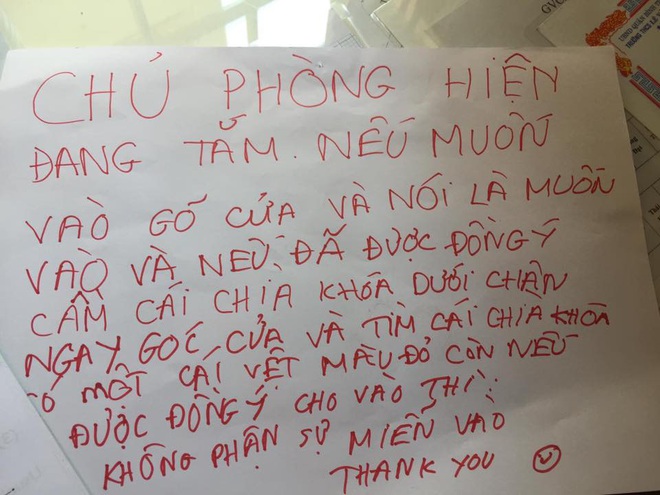 CHỦ PHÒNG HIỆN
ĐANG TẮM. NẾU MUỐN
VAÒ GÕ CỬA VÀ NÓI LÀ MUỐN
VAÒ VÀ NẾU ĐÃ ĐƯỢC ĐỒNG Ý
CẦM CÁI CHÌA KHÓA DƯỚI CHÂN
NGAY GOC CỬA VÀ TÌM CÁI CHÌA KHÓA
CÓ MỘT CÁI VỆT MÀU ĐỎ CÒN NẾU
ĐƯỢC ĐỒNG Ý CHO VÀO THÌ
KHÔNG PHẬN SỰ MIỄN VÀO
THANK YOU